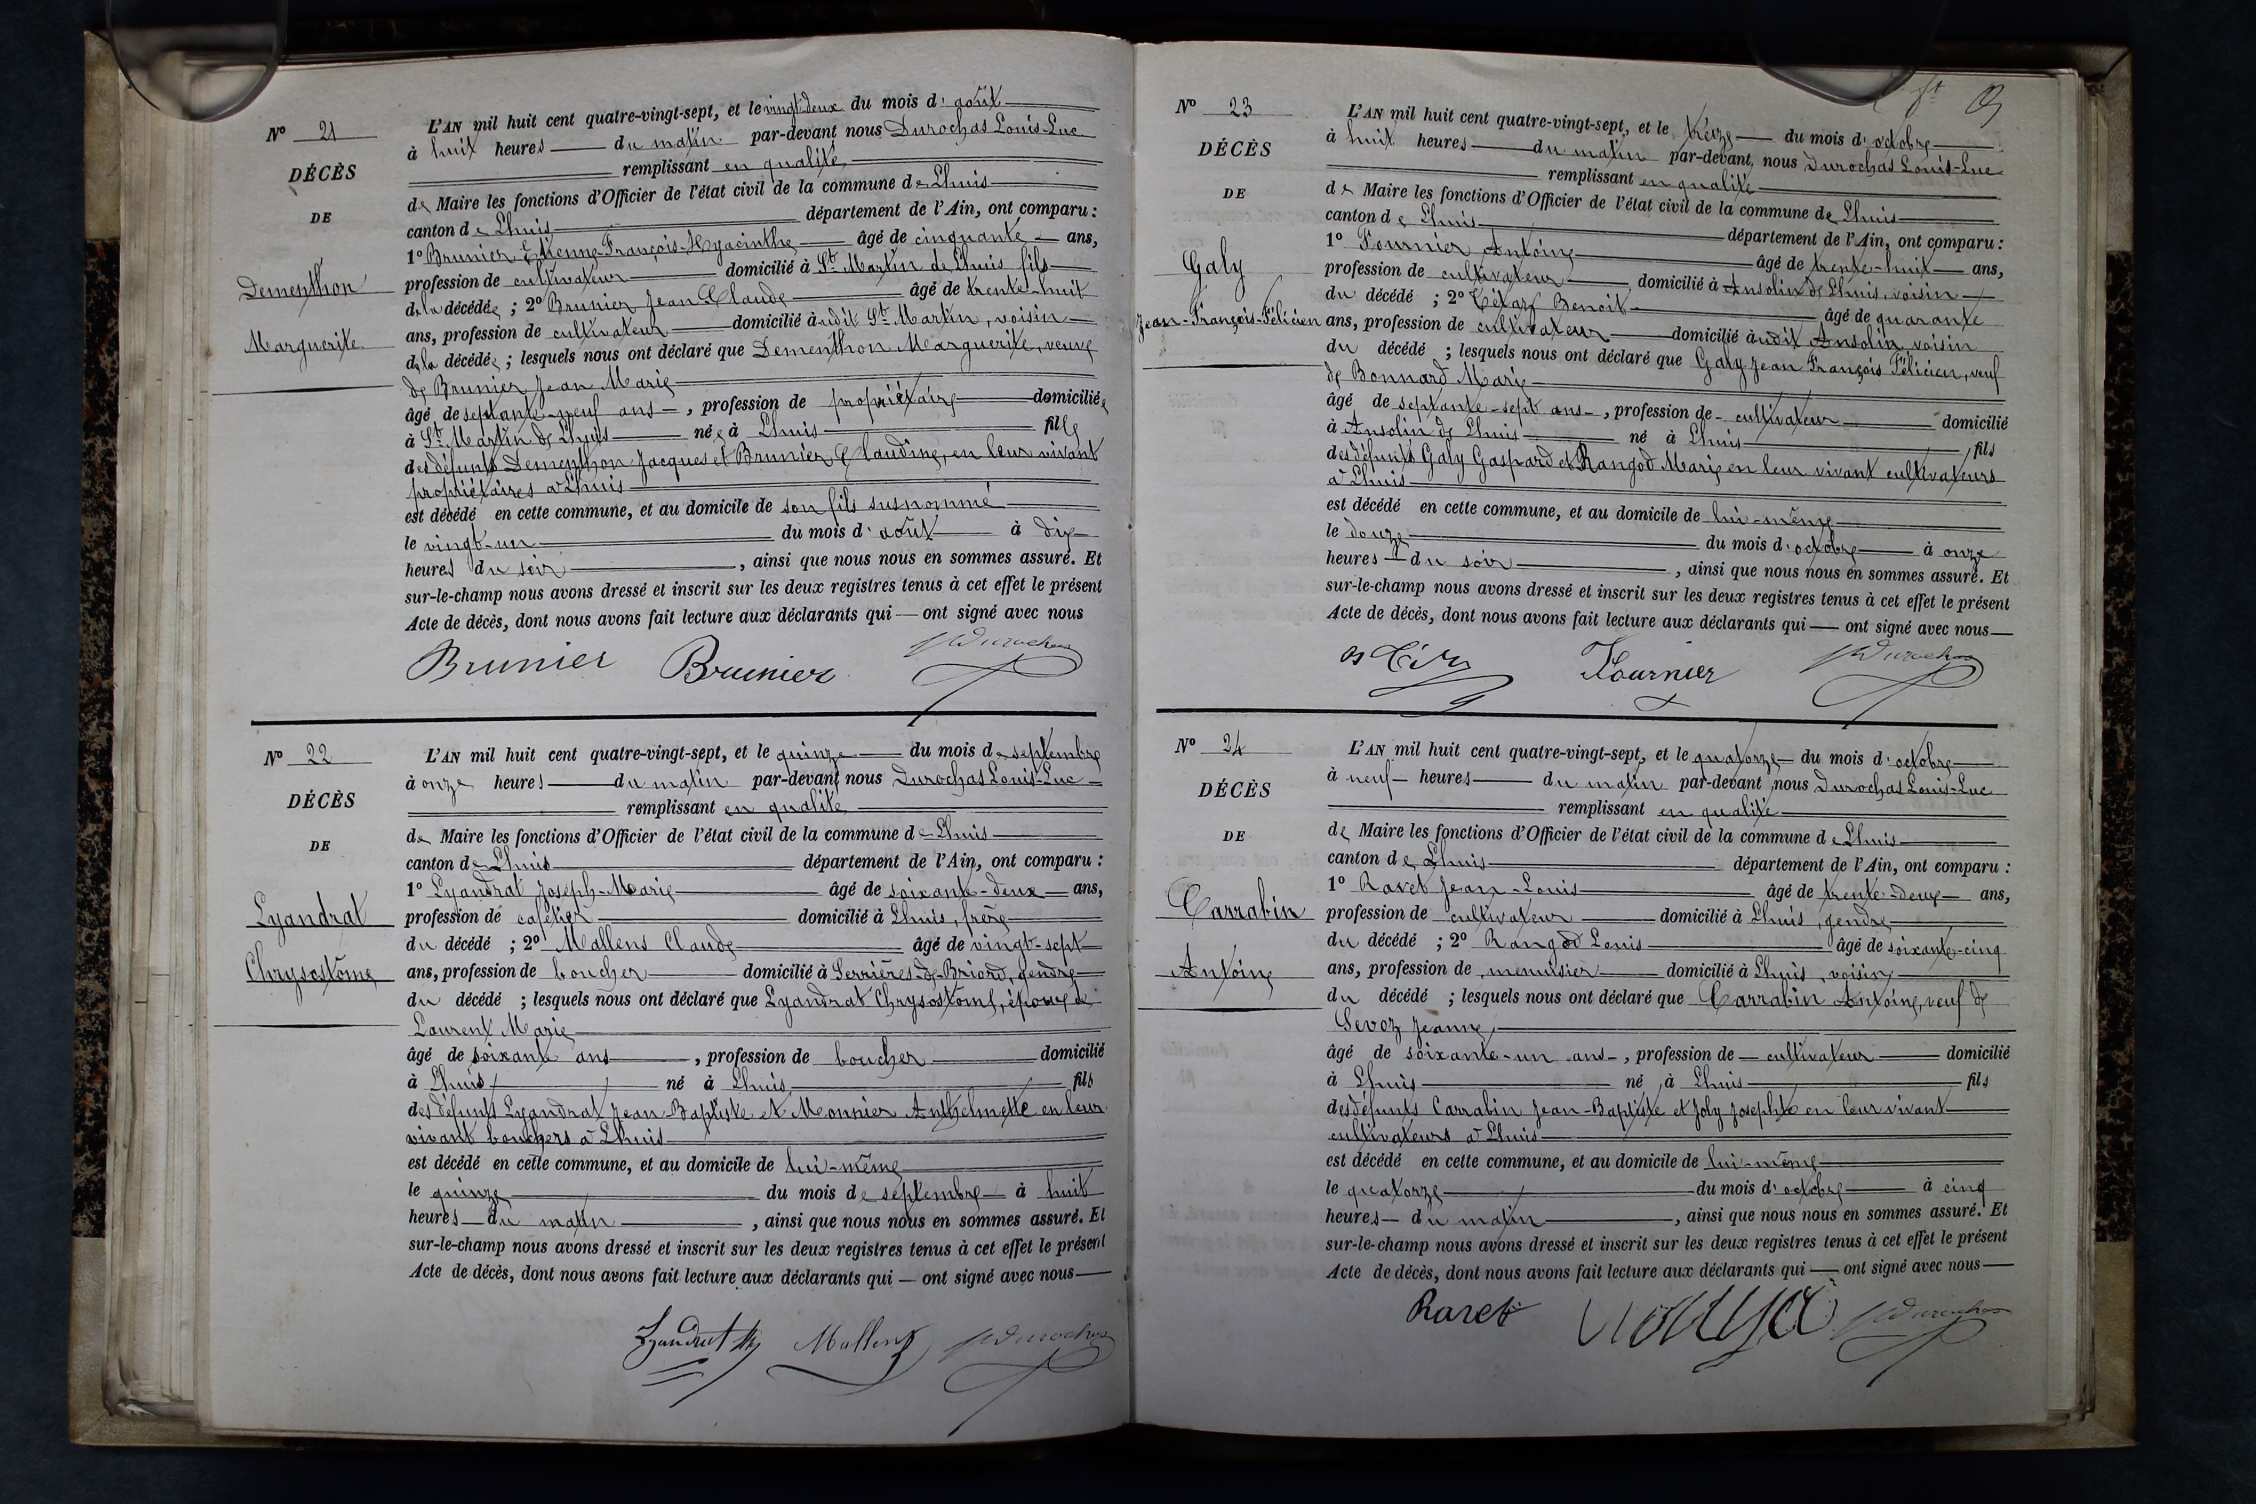 N° 21
DÉCÈS
DE
Dementhon
Marguerite
L'AN mil huit cent quatre-vingt-sept, et le vingt deux du mois d'août
à huit heures du matin par-devant nous Durochas Louis-Luc
remplissant en qualité
de Maire les fonctions d'Officier de l'état civil de la commune de Lhuis
canton de Lhuis département de l'Ain, ont comparu :
1° Brunier Etienne-François-Hyacinthe âgé de cinquante ans,
profession de cultivateur domicilié à St Martin de Lhuis fils
de la décédée ; 2° Brunier Jean Claude âgé de trente-huit
ans, profession de cultivateur domicilié à udit St Martin, voisin
de la décédée ; lesquels nous ont déclaré que Dementhon Marguerite, veuve
de Brunier Jean Marie
âgé de septante-neuf ans, profession de propriétaire domiciliée
à St Martin de Lhuis née à Lhuis fille
des défunts Dementhon Jacques et Brunier Claudine, en leur vivant
propriétaires à Lhuis
est décédé en cette commune, et au domicile de son fils susnommé
le vingt-un du mois d'août à dix
heures du soir, ainsi que nous nous en sommes assuré. Et
sur-le-champ nous avons dressé et inscrit sur les deux registres tenus à cet effet le présent
Acte de décès, dont nous avons fait lecture aux déclarants qui — ont signé avec nous
Brunier Brunier Durochas
N° 22
DÉCÈS
DE
Lyandrat
Chrysostôme
L'AN mil huit cent quatre-vingt-sept, et le quinze du mois de septembre
à onze heures du matin par-devant nous Durochas Louis-Luc
remplissant en qualité
de Maire les fonctions d'Officier de l'état civil de la commune de Lhuis
canton de Lhuis département de l'Ain, ont comparu :
1° Lyandrat Joseph-Marie âgé de soixante-deux ans,
profession de cafetier domicilié à Lhuis, frère
du décédé ; 2° Mallens Claude âgé de vingt-sept
ans, profession de boucher domicilié à Serrières-de-Briord, gendre
du décédé ; lesquels nous ont déclaré que Lyandrat Chrysostôme, époux de
Laurent Marie
âgé de soixante ans, profession de boucher domicilié
à Lhuis né à Lhuis fils
des défunts Lyandrat Jean-Baptiste et Monnier Anthelmette en leur
vivant bouchers à Lhuis
est décédé en cette commune, et au domicile de lui-même
le quinze du mois de septembre à huit
heures du matin, ainsi que nous nous en sommes assuré. Et
sur-le-champ nous avons dressé et inscrit sur les deux registres tenus à cet effet le présent
Acte de décès, dont nous avons fait lecture aux déclarants qui — ont signé avec nous
Lyandrat Mallens Durochas
N° 23
DÉCÈS
DE
Galy
Jean-François-Félicien
L'AN mil huit cent quatre-vingt-sept, et le treize du mois d'octobre
à huit heures du matin par-devant nous Durochas Louis-Luc
remplissant en qualité
de Maire les fonctions d'Officier de l'état civil de la commune de Lhuis
canton de Lhuis département de l'Ain, ont comparu :
1° Fournier Antoine âgé de trente-huit ans,
profession de cultivateur domicilié à Ansolin de Lhuis, voisin
du décédé ; 2° Benoit âgé de quarante
ans, profession de cultivateur domicilié à udit Ansolin, voisin
du décédé ; lesquels nous ont déclaré que Galy Jean François Félicien, veuf
de Bonnard Marie
âgé de septante-sept ans, profession de cultivateur domicilié
à Ansolin de Lhuis né à Lhuis fils
des défunts Galy Gaspard et Rangod Marie en leur vivant cultivateurs
à Lhuis
est décédé en cette commune, et au domicile de lui-même
le douze du mois d'octobre à onze
heures du soir, ainsi que nous nous en sommes assuré. Et
sur-le-champ nous avons dressé et inscrit sur les deux registres tenus à cet effet le présent
Acte de décès, dont nous avons fait lecture aux déclarants qui — ont signé avec nous
Fournier Durochas
N° 24
DÉCÈS
DE
Carrabin
Antoine
L'AN mil huit cent quatre-vingt-sept, et le quatorze du mois d'octobre
à neuf heures du matin par-devant nous Durochas Louis-Luc
remplissant en qualité
de Maire les fonctions d'Officier de l'état civil de la commune de Lhuis
canton de Lhuis département de l'Ain, ont comparu :
1° Ravet Jean-Louis âgé de trente-deux ans,
profession de cultivateur domicilié à Lhuis, gendre
du décédé ; 2° Rangod Louis âgé de soixante-cinq
ans, profession de menuisier domicilié à Lhuis, voisin
du décédé ; lesquels nous ont déclaré que Carrabin Antoine, veuf de
Sevoz Jeanne,
âgé de soixante-un ans, profession de cultivateur domicilié
à Lhuis né à Lhuis fils
des défunts Carrabin Jean-Baptiste et Joly Josephte en leur vivant
cultivateurs à Lhuis
est décédé en cette commune, et au domicile de lui-même
le quatorze du mois d'octobre à cinq
heures du matin, ainsi que nous nous en sommes assuré. Et
sur-le-champ nous avons dressé et inscrit sur les deux registres tenus à cet effet le présent
Acte de décès, dont nous avons fait lecture aux déclarants qui — ont signé avec nous
Ravet Durochas